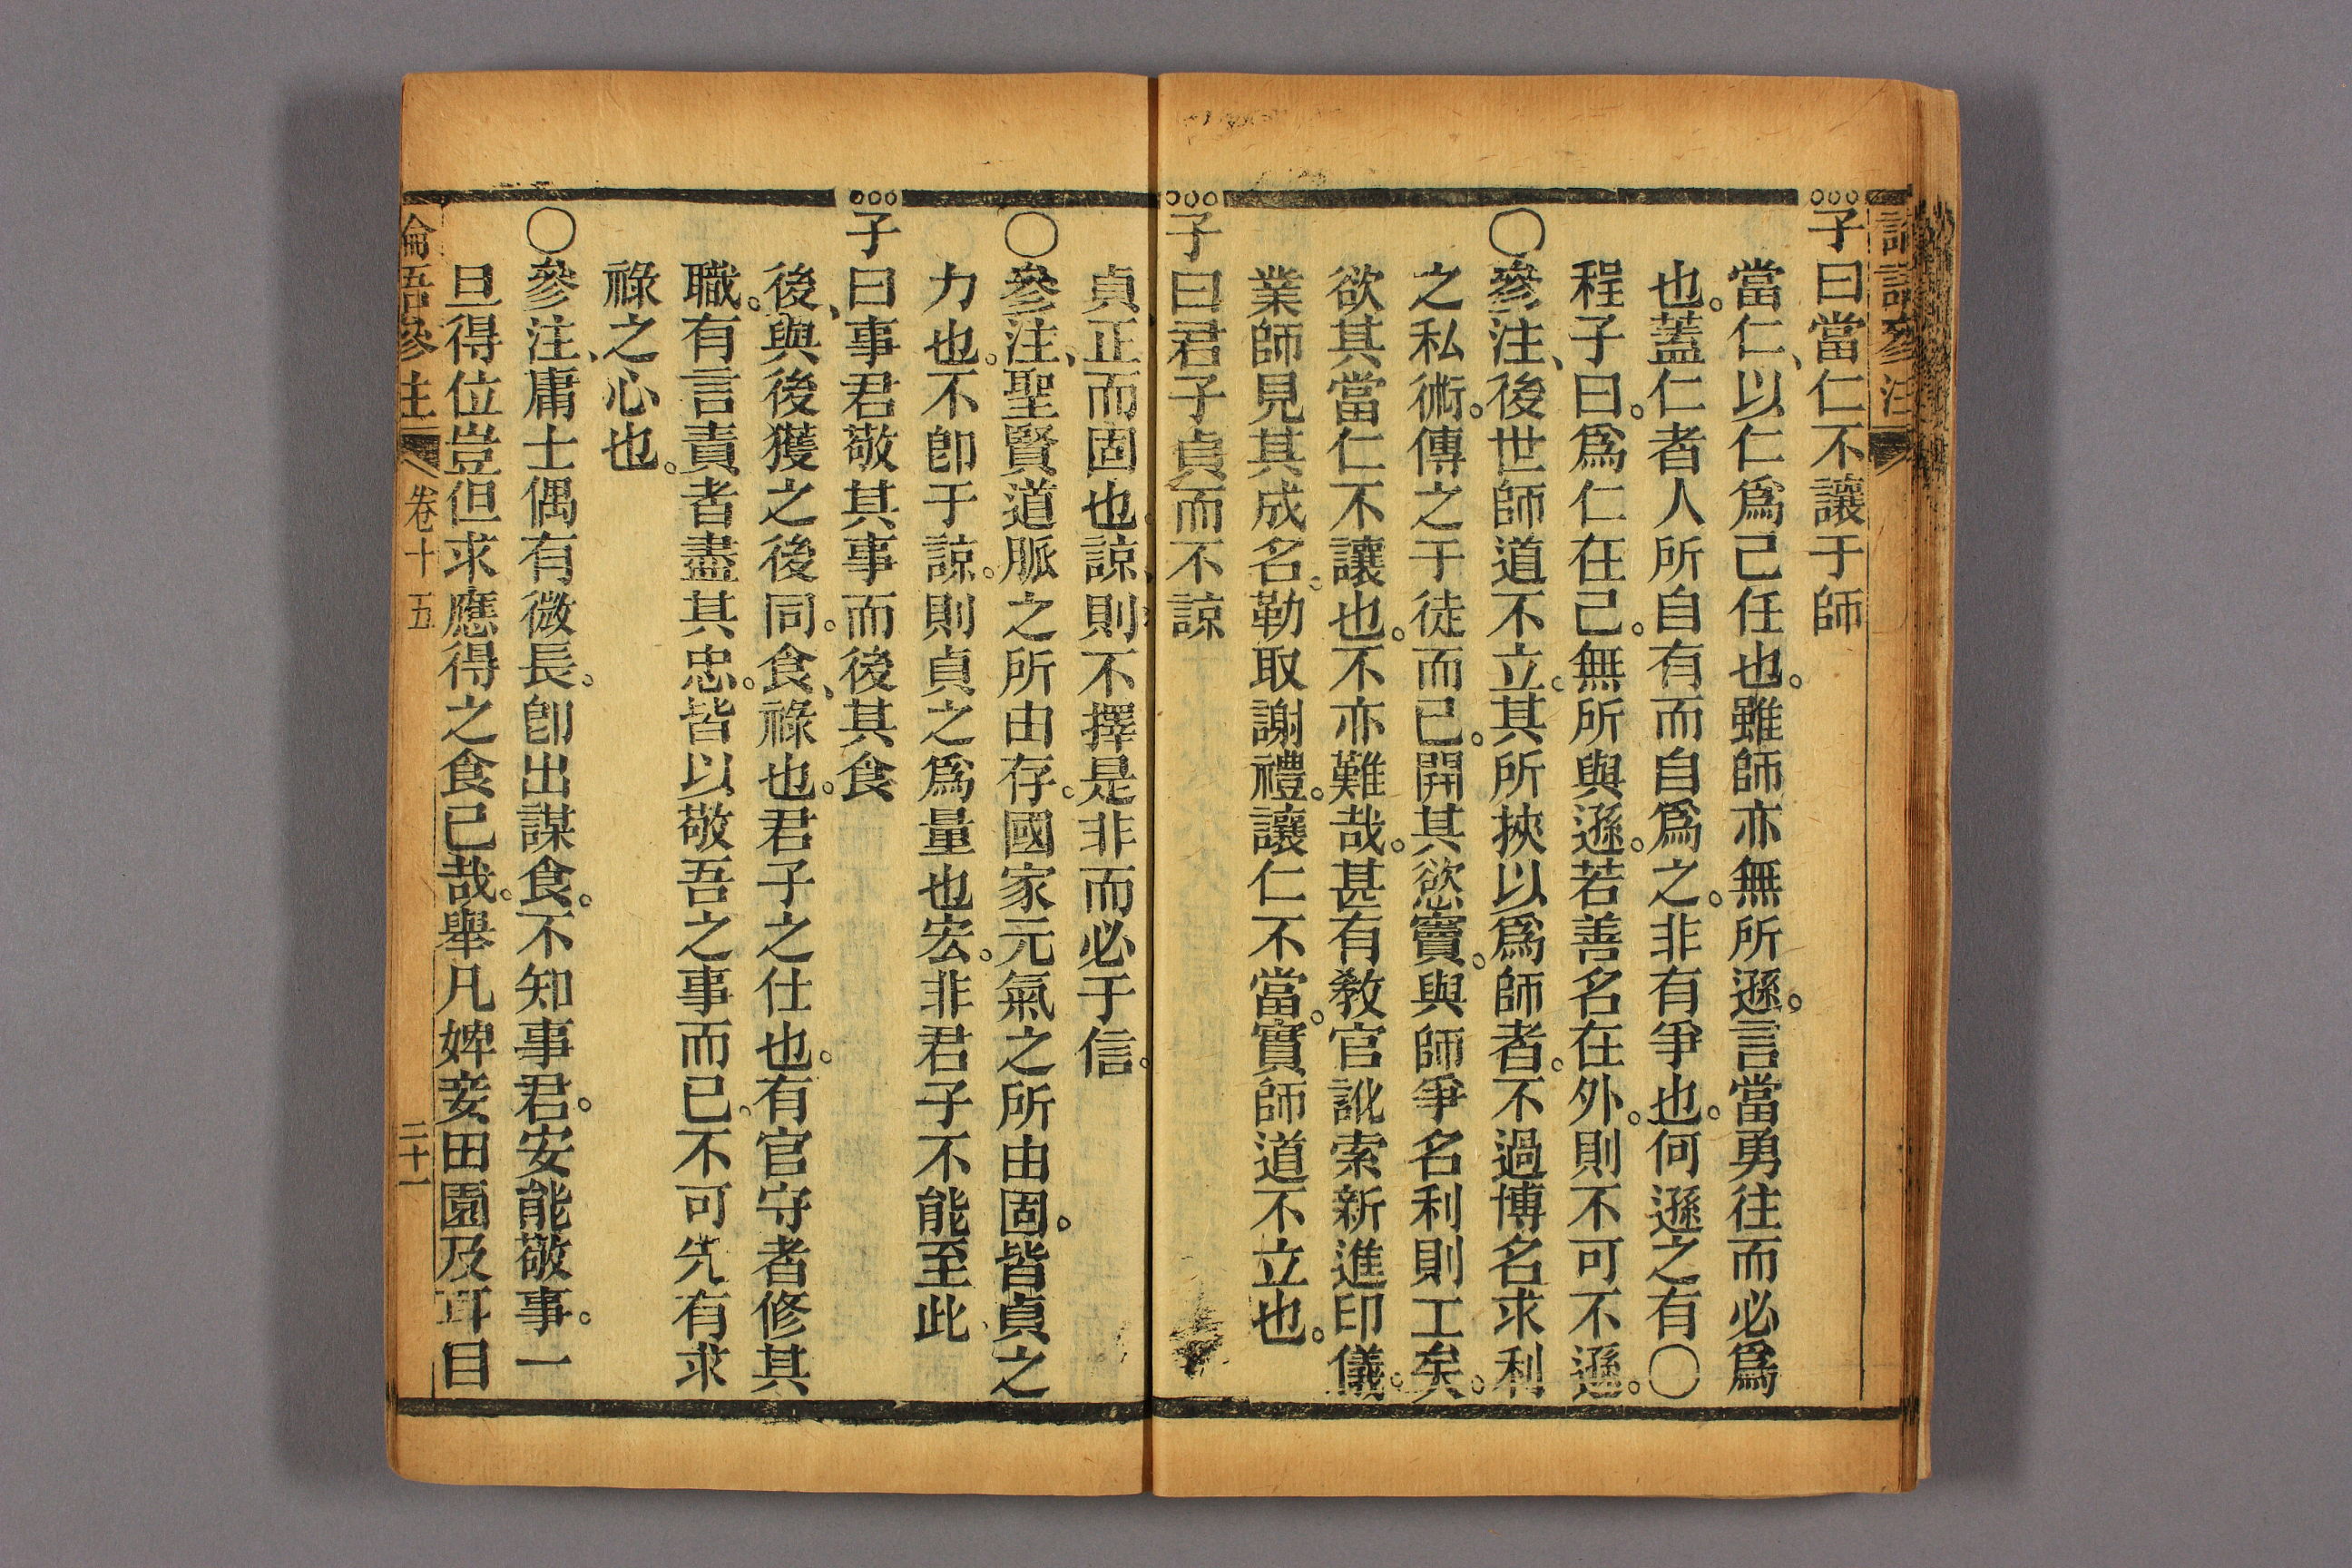 子曰當仁不讓于師
當仁、以仁爲己任也。雖師亦無所遜。言當勇往而必爲
也。蓋仁者人所自有而自爲之。非有爭也。何遜之有〇
程子曰。爲仁在己。無所與遜。若善名在外。則不可不遜。
〇參注、後世師道不立。其所挾以爲師者。不過博名求利
之私術。傳之于徒而已。開其慾竇。與師爭名利則工矣。
欲其當仁不讓也。不亦難哉。甚有教官訛索新進印儀。
業師見其成名。勒取謝禮。讓仁不當。實師道不立也。
子曰君子貞而不諒
貞正而固也。諒、則不擇是非而必于信。
〇參注、聖賢道脈之所由存。國家元氣之所由固。皆貞之
力也。不卽于諒。則貞之爲量也宏。非君子不能至此
子曰事君敬其事而後其食
後、與後獲之後同。食、祿也。君子之仕也。有官守者修其
職。有言責者盡其忠。皆以敬吾之事而已。不可先有求
祿之心也。
〇參注、庸士偶有微長。卽出謀食。不知事君。安能敬事。一
旦得位豈但求應得之食已哉。舉凡婢妾田園及耳目
論語參注 卷十五 二十一